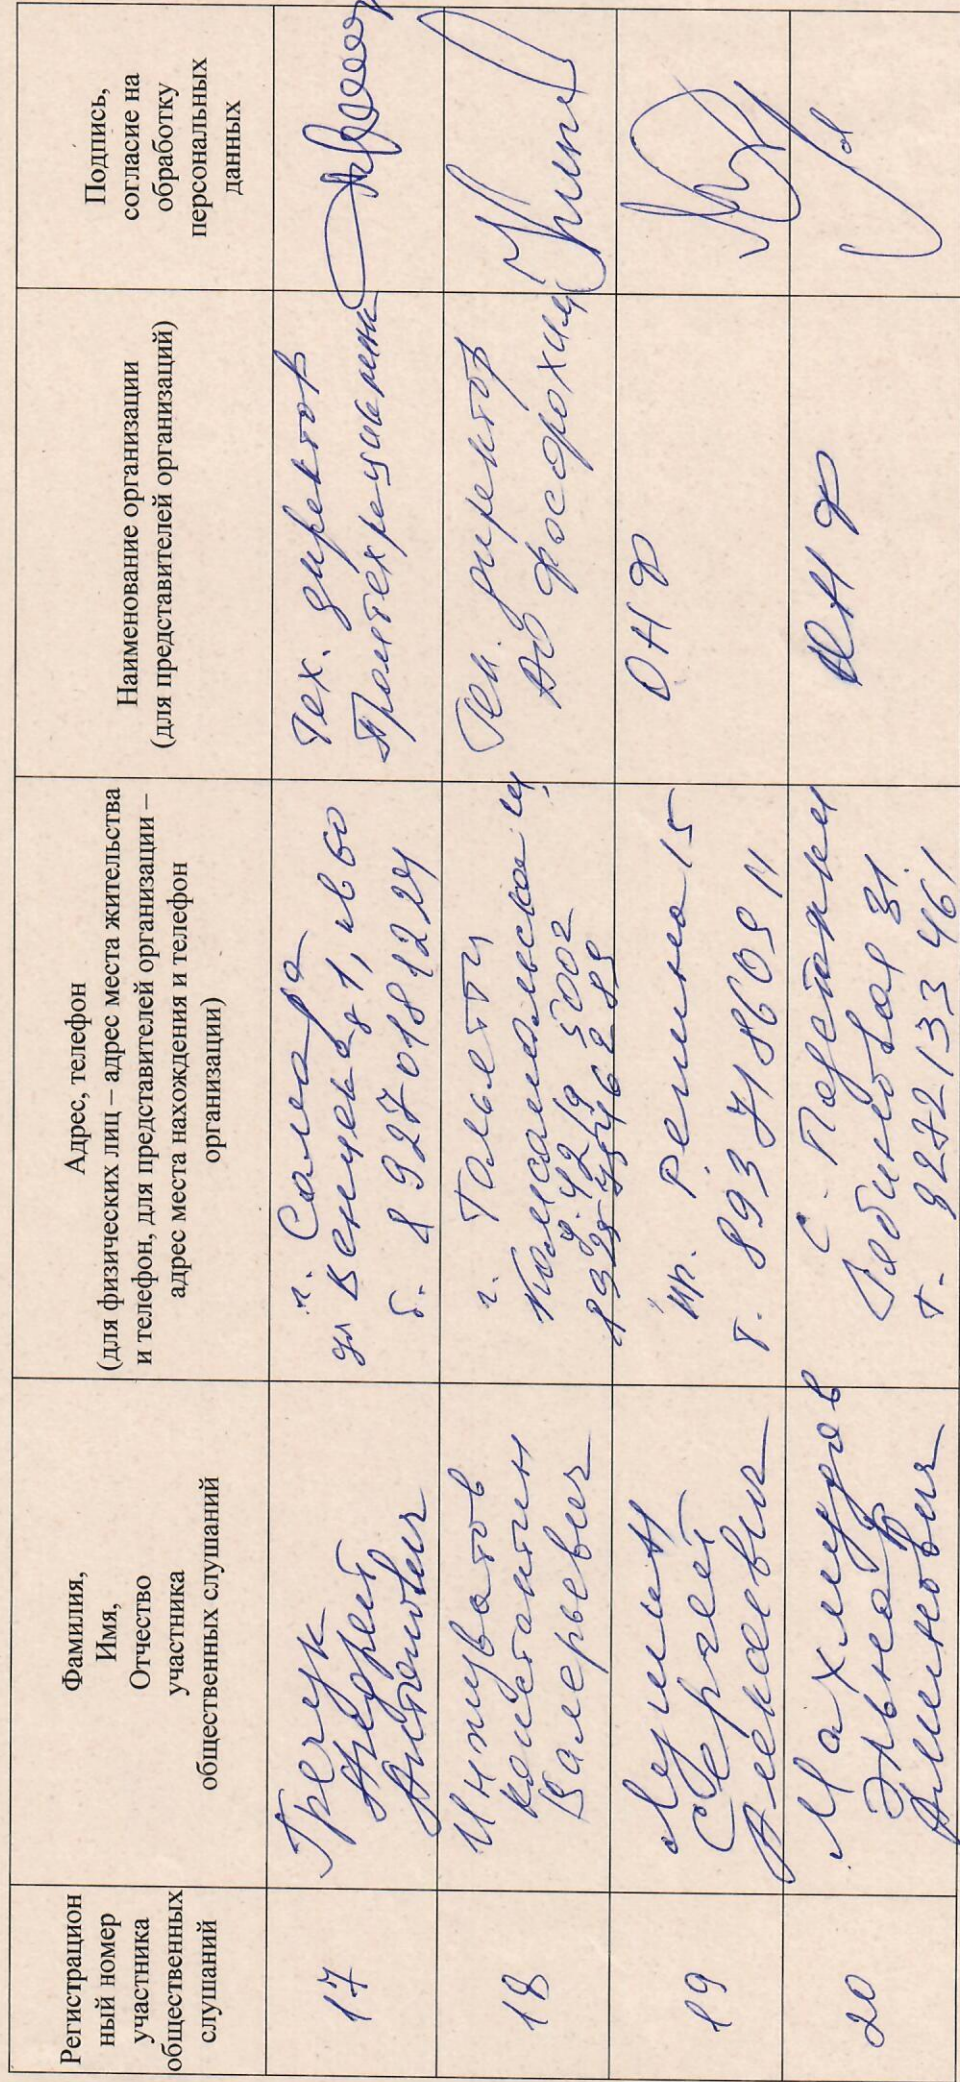 Регистрацион
ный номер
участника
общественных
слушаний
Фамилия,
Имя,
Отчество
участника
общественных слушаний
Адрес, телефон
(для физических лиц – адрес места жительства
и телефон, для представителей организации –
адрес места нахождения и телефон
организации)
Наименование организации
(для представителей организаций)
Подпись,
согласие на
обработку
персональных
данных
17
Гречук
Андрей
Антонович
г. Самара
ул Венцека 1, кв 60
т. 8 927 018 12 24
Тех. директор
18
Константин
Валерьевич
г. Тольятти
Комсомольская
Ген. директор
АО Фосфорохим
19
Лушин
Сергей
Алексеевич
Репина 15
т. 893 7186 09 11
ОНФ
20
Махмудов
Эльнар
Аминович
с. Подстепки
Рябиновая 31
т. 9272133 461
ОНФ